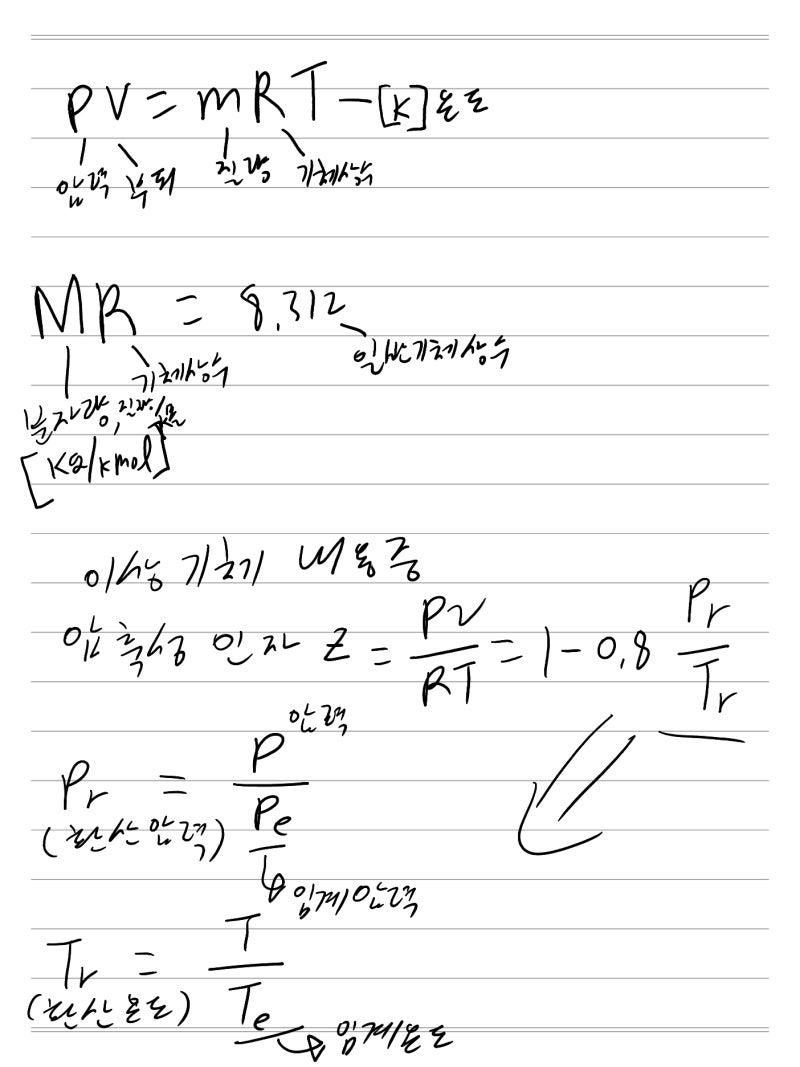 PV = mRT - [K] 온도
압력 부피 질량 기체상수
MR = 8.312
기체상수 일반기체상수
분자량, 질량/k몰
[kg/kmol]
이상기체 내용중
압축성 인자 Z = PV/RT = 1 - 0.8 Pr/Tr
Pr = P/Pe 압력
(환산압력)
임계압력
Tr = T/Te
(환산온도)
임계온도